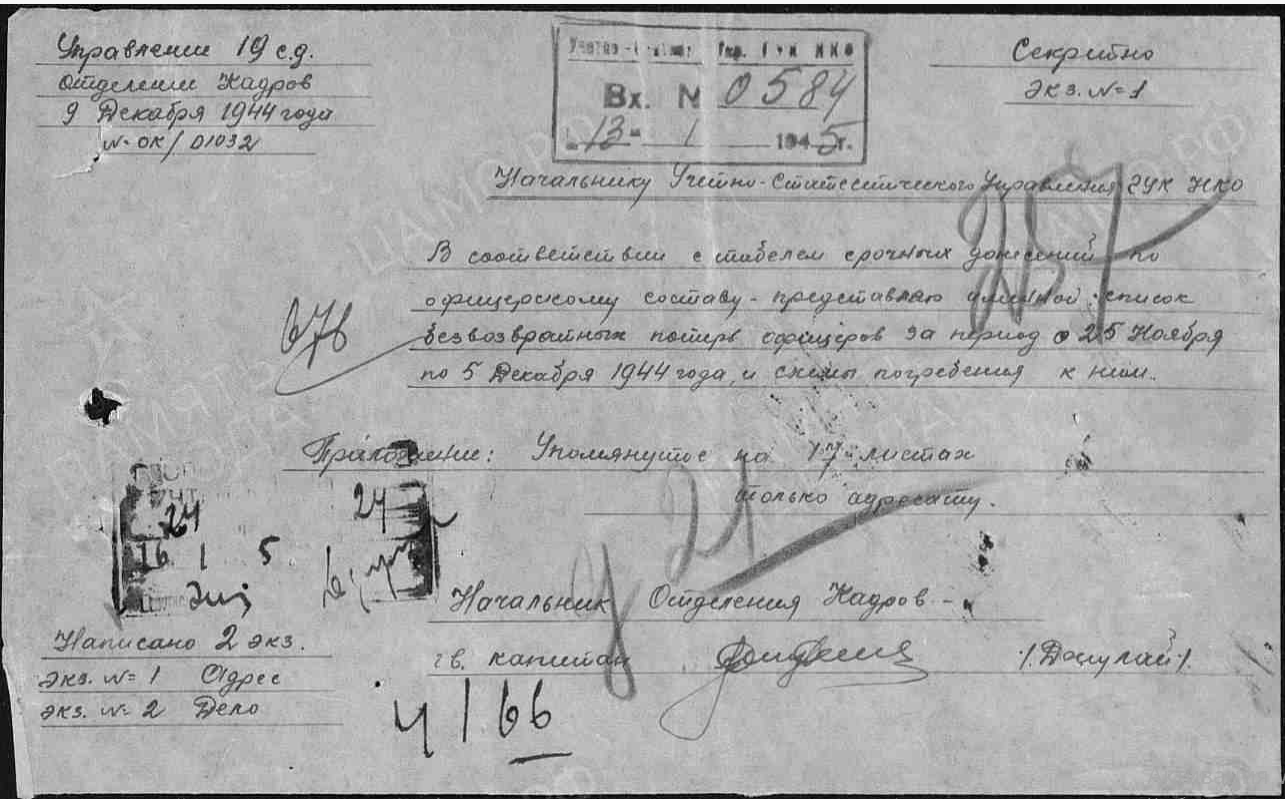 Управление 19 с.д.
Отделение Кадров
9 Декабря 1944 года
№ ОК/01032
Вх. № 0584
13 1 1945 г.
Секретно
Экз. № 1
Начальнику Учетно-Статистического Управления ГУК НКО
В соответствии с табелем срочных донесений по
офицерскому составу - представляю именной список
безвозвратных потерь офицеров за период с 25 Ноября
по 5 Декабря 1944 года, и схемы погребения к ним.
Приложение: Упомянутое на листах
только адресату.
24 24
16 1 5
Начальник Отделения Кадров -
гв. капитан
Написано 2 экз.
Экз. № 1 Адрес
Экз. № 2 Дело
4166